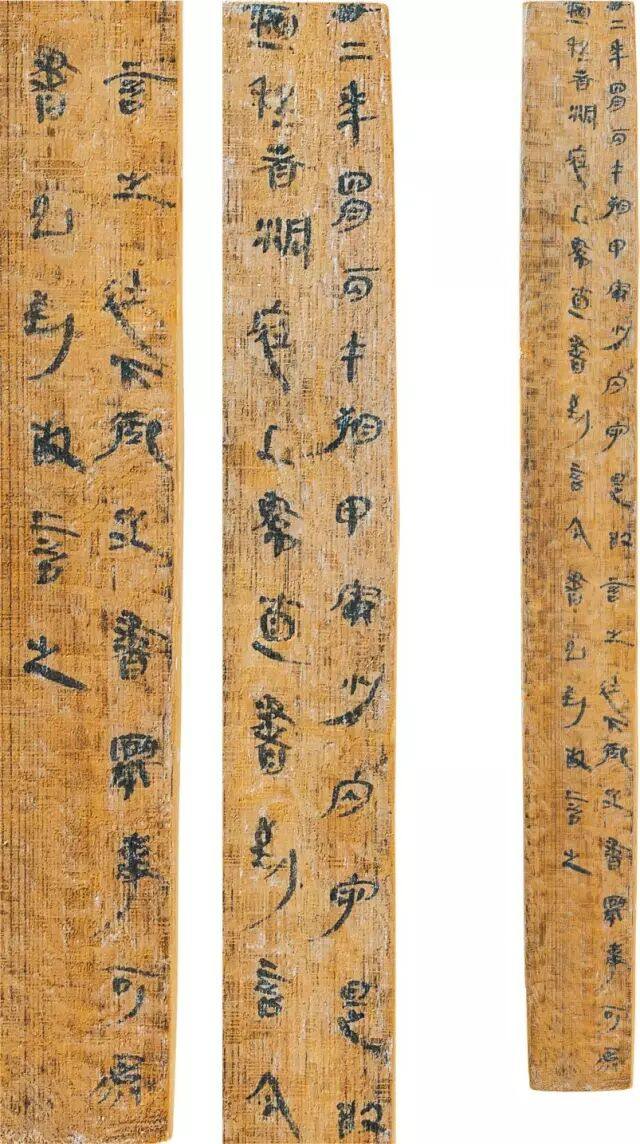 二年四月丙午朔甲寅少内守是敢言之廷下御史書舉事可爲
恒程者洞庭上帬直書到言今書已到敢言之
二年四月丙午朔甲寅少内守是敢
恒程者洞庭上帬直書到言今
言之廷下御史書舉事可爲
書已到敢言之